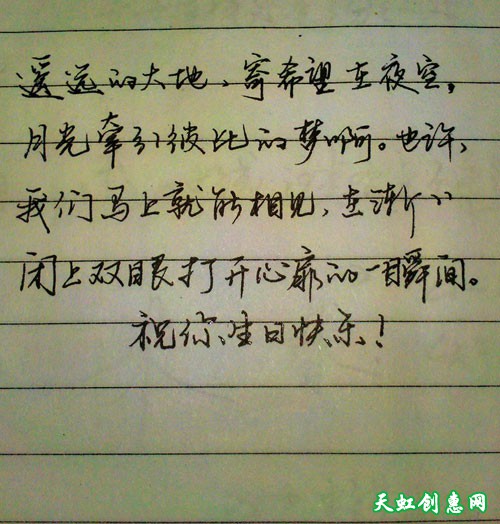 遥远的大地、寄希望在夜空，
月光牵引彼此的梦啊。也许、
我们马上就能相见、在渐〃
闭上双眼打开心扉的一瞬间。
祝你、生日快乐、！
天虹创意网